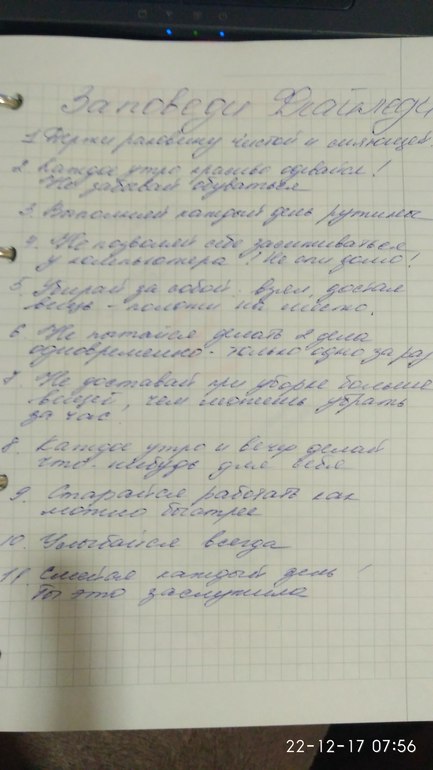 Заповеди Флайледи
1. Держи раковину чистой и сияющей.
2. Каждое утро красиво одевайся!
Не забывай обуваться
3. Выполняй каждый день рутины
4. Не позволяй себе засиживаться
у компьютера! Не спи долго!
5. Убирай за собой. взял, достал
вещь - положи на место.
6. Не пытайся делать 2 дела
одновременно. Только одно за раз
7. Не доставай при уборке больше
вещей, чем можешь убрать
за час
8. Каждое утро и вечер делай
что-нибудь для себя
9. Старайся работать как
можно быстрее
10. Улыбайся всегда
11. Смейся каждый день!
Ты это заслужила
22-12-17 07:56